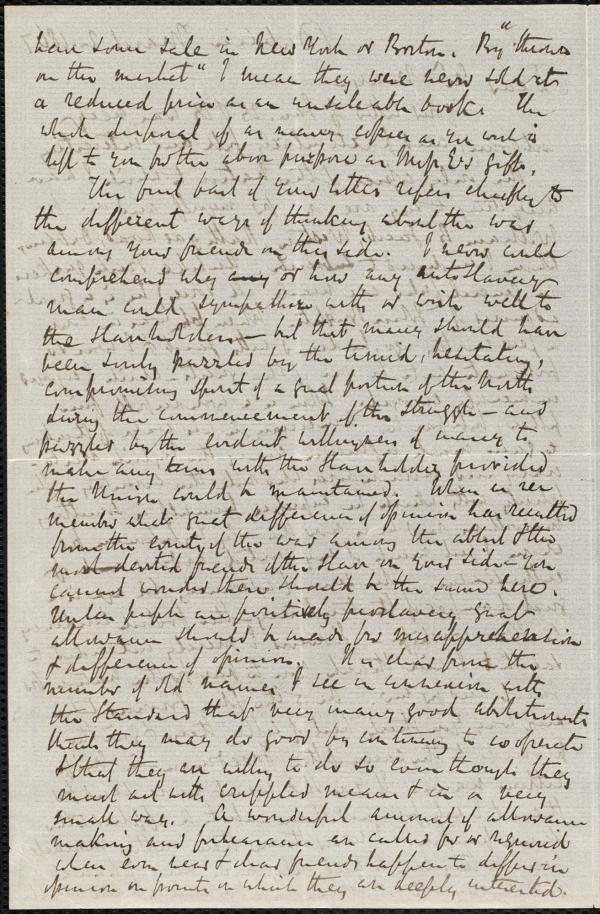 have some sale in New York or Boston. By "thrown
on the market" I mean they were never sold at
a reduced price as an unsaleable book. The
whole disposal of as many copies as you wish is
left to you for the above purpose as Miss E's gift.
The first part of your letter refers chiefly to
the different ways of thinking about the war
among your friends on this side. I never could
comprehend why any or how any antislavery
man could sympathise with or wish well to
the slaveholders – but that many should have
been sorely puzzled by the timid, hesitating,
compromising spirit of a great portion of the North
during the commencement of the struggle – and
puzzled by the evident willingness of many to
make any terms with the slaveholders provided
the Union could be maintained. When we re
member what great difference of opinion has resulted
from the events of the war among the ablest & the
most devoted friends of the slave on your side – you
cannot wonder there should be the same here.
Unless people are positively proslavery great
allowance should be made for misapprehension
& difference of opinion. It is clear from the
number of old names I see in connexion with
the Standard that very many good abolitionists
think they may do good by continuing to cooperate
& that they are willing to do so even though they
must act with crippled means & in a very
small way. A wonderful amount of allowance
making and forbearance are called for or required
when even near & dear friends happen to differ in
opinion on points in which they are deeply interested.